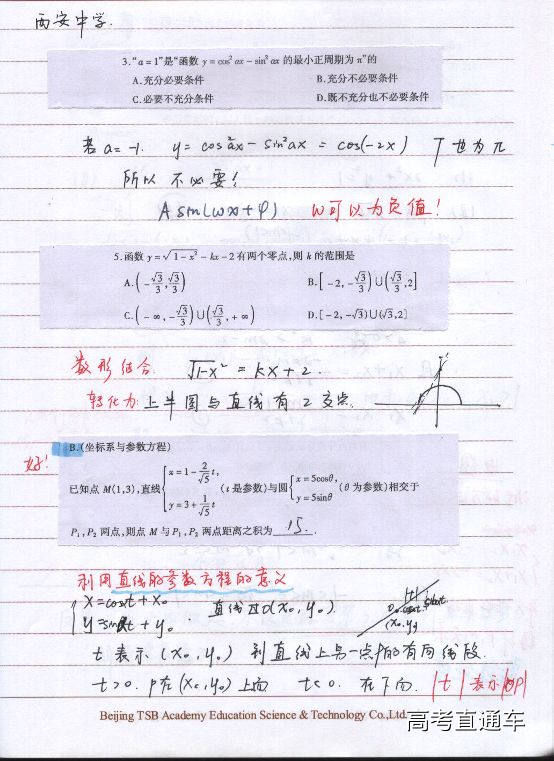 西安中学.
3. “a = 1”是“函数 y = cos² ax − sin² ax 的最小正周期为 π”的
A. 充分必要条件 B. 充分不必要条件
C. 必要不充分条件 D. 既不充分也不必要条件
若 a = -1. y = cos²ax − sin²ax = cos(-2x) T 也为π
所以 不必要!
A sin(wx+φ) w可以为负值!
5. 函数 y = √(1 − x²) − kx − 2 有两个零点,则 k 的范围是
A. (−√3/3, √3/3) B. [−2, −√3/3)∪(√3/3, 2]
C. (−∞, −√3/3)∪(√3/3, +∞) D. [−2, −√3)∪(√3, 2]
数形结合. √(1-x²) = kx+2.
转化为: 上半圆与直线有2交点.
好!
B. (坐标系与参数方程)
已知点 M(1,3), 直线{x = 1 − 2/√5 t, y = 3 + 1/√5 t (t 是参数)与圆{x = 5cosθ, y = 5sinθ (θ 为参数)相交于
P₁, P₂ 两点,则点 M 与 P₁, P₂ 两点距离之积为 15.
利用直线的参数方程的意义
x = cosαt + x₀ 直线过O(x₀, y₀) |t|
y = sinαt + y₀. (x₀, y₀)
t 表示 (x₀, y₀) 到直线上另一点P的有向线段.
t>0. P在(x₀, y₀)上向 t<0. 在下向. |t| 表示|OP|
Beijing TSB Academy Education Science & Technology Co.,Ltd.
高考直通车